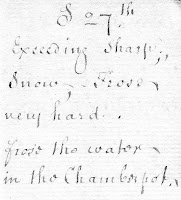 S 27th
Exceeding sharp;
Snow, Frose
very hard.
frose the water
in the Chamberpot.